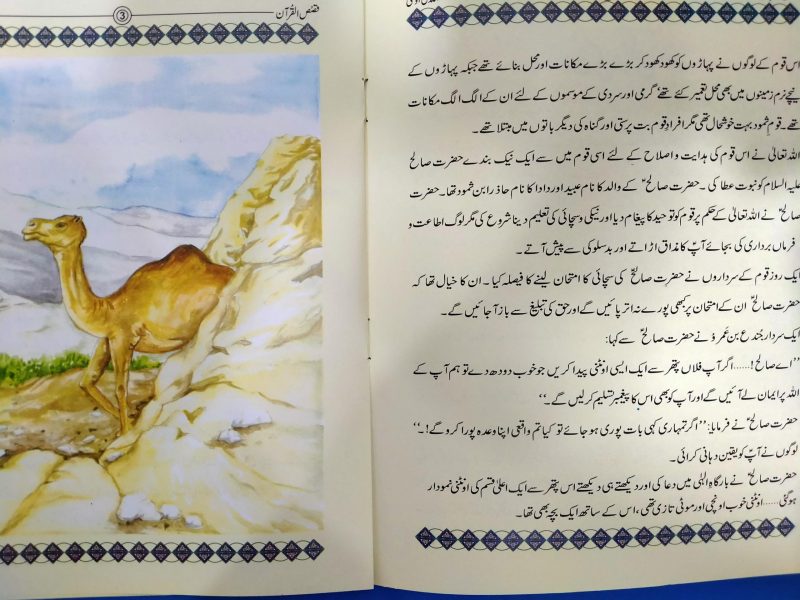 قصص القرآن
3
اس قوم کے لوگوں نے پہاڑوں کو کھود کھود کر بڑے بڑے مکانات اور محل بنائے تھے جبکہ پہاڑوں کے
نیچے نرم زمینوں میں بھی محل تعمیر کئے تھے‘ گرمی اور سردی کے موسموں کے لئے ان کے الگ الگ مکانات
تھے۔ قوم ثمود بہت خوشحال تھی مگر افراد قوم بت پرستی اور گناہ کی دیگر باتوں میں مبتلا تھے۔
اللہ تعالیٰ نے اس قوم کی ہدایت و اصلاح کے لئے اسی قوم میں سے ایک نیک بندے حضرت صالح
علیہ السلام کو نبوت عطا کی۔ حضرت صالحؑ کے والد کا نام عبید اور دادا کا نام حاذر ابن ثمود تھا۔ حضرت
صالحؑ نے اللہ تعالیٰ کے حکم پر قوم کو توحید کا پیغام دیا اور نیکی و سچائی کی تعلیم دینا شروع کی مگر لوگ اطاعت و
فرماں برداری کی بجائے آپؑ کا مذاق اڑاتے اور بدسلوکی سے پیش آتے۔
ایک روز قوم کے سرداروں نے حضرت صالحؑ کی سچائی کا امتحان لینے کا فیصلہ کیا۔ ان کا خیال تھا کہ
حضرت صالحؑ ان کے امتحان پر کبھی پورے نہ اتر پائیں گے اور حق کی تبلیغ سے باز آجائیں گے۔
ایک سردار جندع بن عمرو نے حضرت صالحؑ سے کہا:
’’اے صالح!......اگر آپ فلاں پتھر سے ایک ایسی اونٹنی پیدا کریں جو خوب دودھ دے تو ہم آپ کے
اللہ پر ایمان لے آئیں گے اور آپ کو بھی اس کا پیغمبر تسلیم کر لیں گے۔‘‘
حضرت صالحؑ نے فرمایا: ’’اگر تمہاری کہی بات پوری ہو جائے تو کیا تم واقعی اپنا وعدہ پورا کرو گے!۔‘‘
لوگوں نے آپؑ کو یقین دہانی کرائی۔
حضرت صالحؑ نے بارگاہ الٰہی میں دعا کی اور دیکھتے ہی دیکھتے اس پتھر سے ایک اعلیٰ قسم کی اونٹنی نمودار
ہوگئی......اونٹنی خوب اونچی اور موٹی تازی تھی، اس کے ساتھ ایک بچہ بھی تھا۔